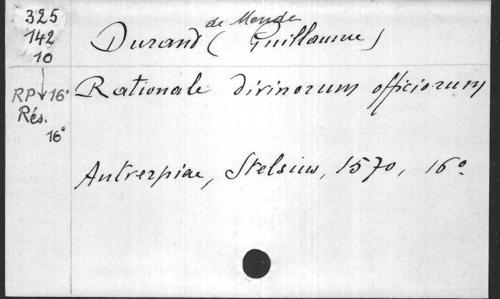 325
142
10
RP 16°
Rés.
16°
de Mende
Durand (Guillaume)
Rationale divinorum officiorum
Antverpiae, Stelsius, 1570, 16°